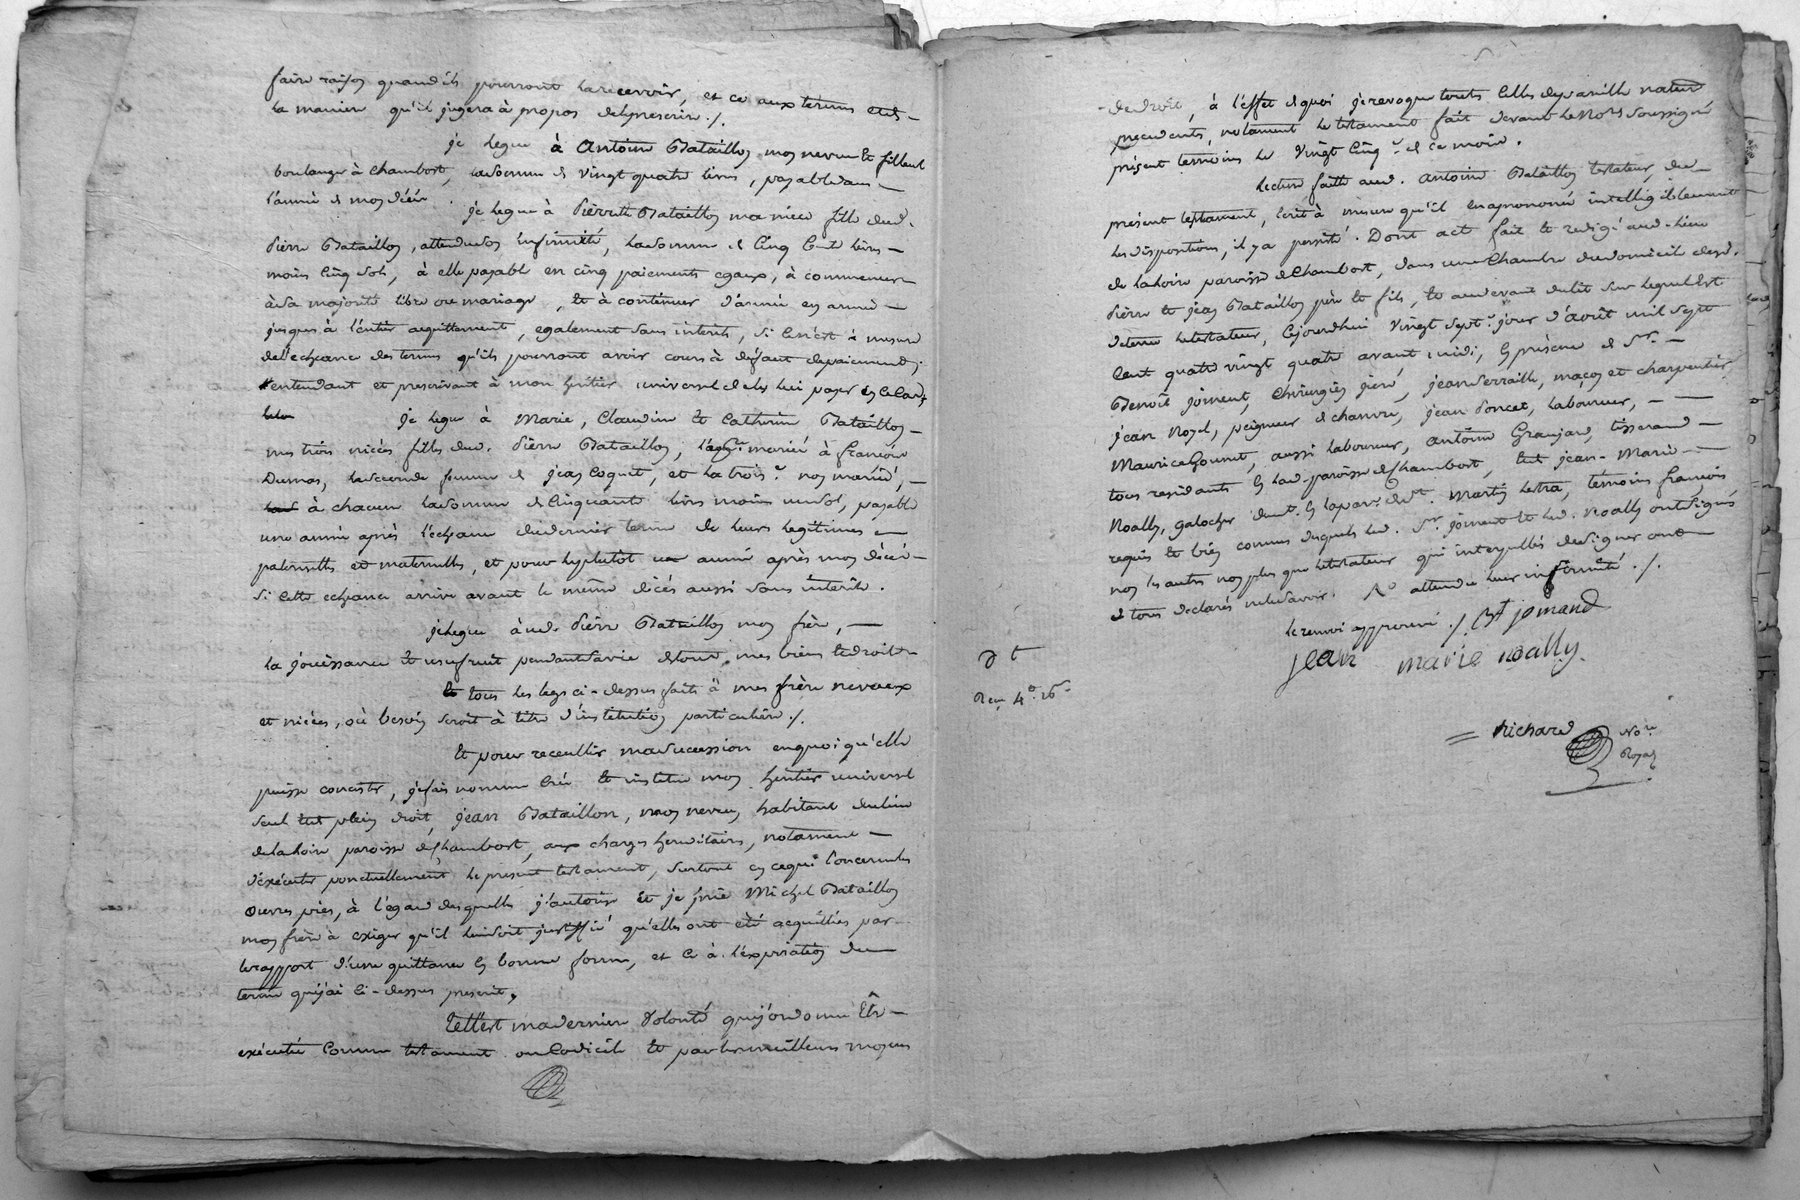 faire raison quand ils pourront la recevoir, et ce aux termes et de
la maniere qu'il jugera à propos de les prescrire ./.
je legue à Antoine Bataillon mon neveu et filleul
boulanger à Chambost, la somme de vingt quatre livres, payable dans
l'année de mon décès.
je legue à Pierrette Bataillon ma niece fille dud.
Pierre Bataillon, attendu son infirmité, la somme de cinq cent livres
moins cinq sols, à elle payable en cinq paiements egaux, à commencer
à sa majorité libre ou mariage, et à continuer d'année en année
jusques à l'entier acquittement, egalement sans interets, si ce n'est à mesure
de l'echeance des termes qu'ils pourront avoir cours à défaut de paiement;
entendant et prescrivant à mon heritier universel de les lui payer
je legue à Marie, Claudine et Catherine Bataillon
mes trois nieces filles dud. Pierre Bataillon, mariée à françois
Dumas, la seconde femme de jean Coquet, et la trois.e non mariée,
à chacune la somme de cinquante livres moins un sol, payable
une année après l'echeance du dernier terme de leurs legitimes
paternelles et maternelles, et pour le plutôt une année après mon décès
si cette echeance arrive avant le même décès aussi sans interêts.
je legue aud. Pierre Bataillon mon frère,
la jouissance et usufruit pendant sa vie de tous mes biens et droits
et tous les legs ci-dessus faits à mes frère neveux
et nieces, où besoin seroit à titre d'institution particulière ./.
Et pour recueillir ma succession en quoi qu'elle
puisse consister, j'ai fais nommé créé et institué mon heritier universel
seul et de plein droit, jean Bataillon, mon neveu, habitant du lieu
de la hoire paroisse de Chambost, aux charges hereditaires, notament
d'exécuter ponctuellement le present testament, surtout en ce qui concerne les
œuvres pies, à l'égard desquelles j'autorise et je prie Michel Bataillon
mon frère à exiger qu'il lui soit justiffié qu'elles ont été acquittées par
le rapport d'une quittance en bonne forme, et ce à l'expiration du
terme que j'ai ci-dessus prescrit.
Telle est ma derniere volonté que j'ordonne être
exécutée comme testament ou codicile et par les meilleurs moyens
de droit, à l'effet de quoi je revoque toutes celles de pareille nature
precedentes, notament le testament fait devant le No.re soussigné
présent temoins le vingt cinq.e de ce mois.
Lecture faitte aud. Antoine Bataillon testateur, du
présent testament, écrit à mesure qu'il en a prononcé intelligiblement
les dispositions, il y a persisté. Dont act fait et redigé aud. lieu
de la hoire paroisse de Chambost, dans une chambre du domicile desd.
Pierre et jean Bataillon père et fils, et au devant du lit sur lequel est
detenu le testateur, cejourdhui vingt sept.e jour d'août mil sept
cent quatre vingt quatre avant midi, en présence de S.r
Benoît joment, chirurgien juré, jean Serraille, maçon et charpentier,
jean Noyel, peigneur de chanvre, jean Poncet, laboureur,
Maurice Gounet, aussi laboureur, Antoine Granjard, tisserand
tous residants en lad. paroisse de Chambost, et jean-Marie
Noally, galocher dem.t en la par.se de S.t Martin Lestra, temoins françois
requis et bien connus desquels led. S.r joment et led. Noally ont signés
non les autres non plus que le testateur qui interpellés de signer ont
de tous declarés ne le savoir. R.o attendu leur infirmité ./.
le renvoi approuvé ./. B.t jomand
jean marie noally
Reçu 4.o 16.s
Richard No.re
Royal